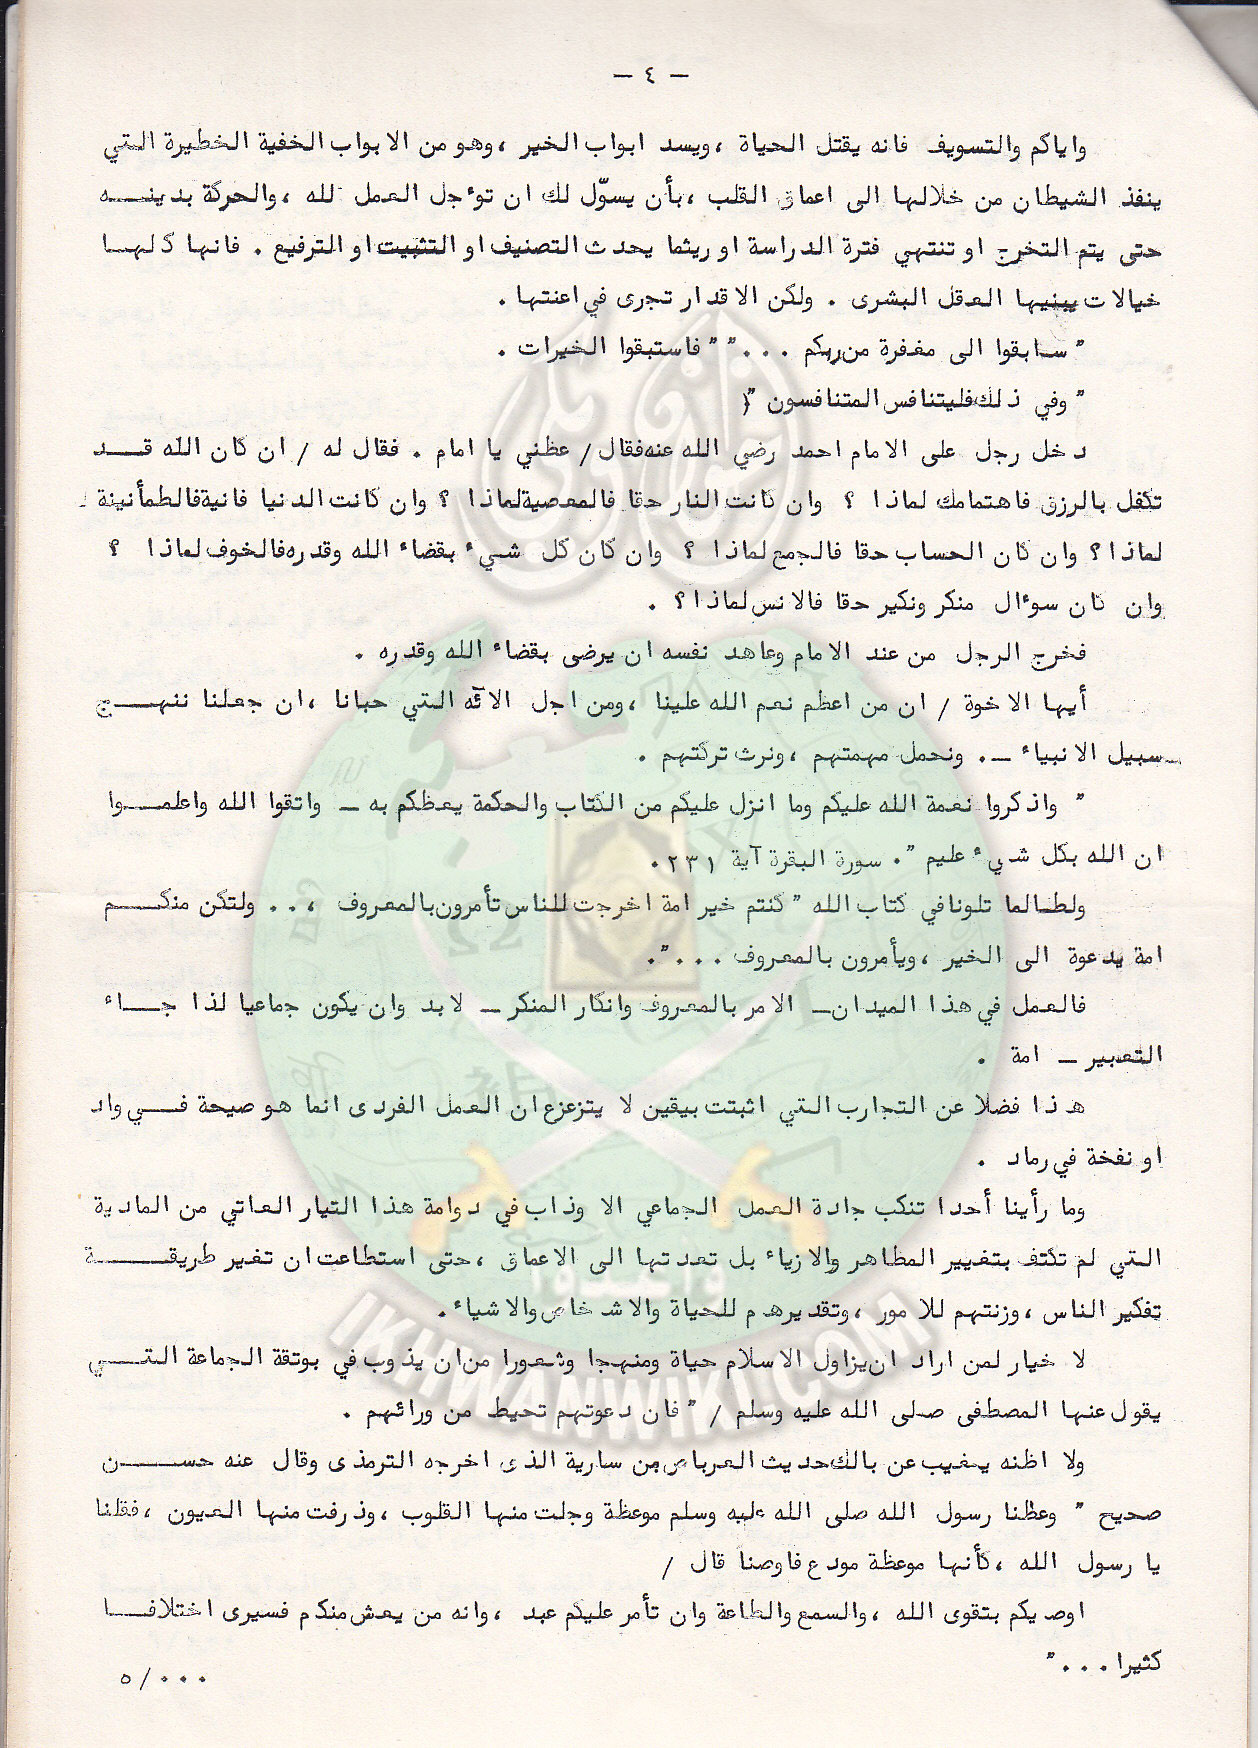 - ٤ -
واياكم والتسويف فانه يقتل الحياة ، ويسد ابواب الخير ، وهو من الابواب الخفية الخطيرة التي
ينفذ الشيطان من خلالها الى اعماق القلب ، بأن يسوّل لك ان توءجل العمل لله ، والحركة بدينه
حتى يتم التخرج او تنتهي فترة الدراسة او ريثما يحدث التصنيف او التثبيت او الترفيع . فانها كلها
خيالات يبنيها العقل البشرى . ولكن الاقدار تجرى في اعنتها .
" سابقوا الى مغفرة من ربكم ... " " فاستبقوا الخيرات .
" وفي ذلك فليتنافس المتنافسون "(
دخل رجل على الامام احمد رضي الله عنه فقال / عظني يا امام . فقال له / ان كان الله قد
تكفل بالرزق فاهتمامك لماذا ؟ وان كانت النار حقا فالمعصية لماذا ؟ وان كانت الدنيا فانية فالطمأنينة
لماذا ؟ وان كان الحساب حقا فالجمع لماذا ؟ وان كان كل شيء بقضاء الله وقدره فالخوف لماذا ؟
وان كان سوءال منكر ونكير حقا فالانس لماذا ؟ .
فخرج الرجل من عند الامام وعاهد نفسه ان يرضى بقضاء الله وقدره .
أيها الاخوة / ان من اعظم نعم الله علينا ، ومن اجل الآئه التي حبانا ، ان جعلنا ننهج
سبيل الانبياء - . ونحمل مهمتهم ، ونرث تركتهم .
" واذكروا نعمة الله عليكم وما انزل عليكم من الكتاب والحكمة يعظكم به - واتقوا الله واعلموا
ان الله بكل شيء عليم ". سورة البقرة آية ٢٣١.
ولطالما تلونا في كتاب الله " كنتم خير امة اخرجت للناس تأمرون بالمعروف ، .. ولتكن منكم
امة يدعوة الى الخير ، ويأمرون بالمعروف ... ".
فالعمل في هذا الميدان - الامر بالمعروف وانكار المنكر - لابد وان يكون جماعيا لذا جاء
التعبير - امة .
هذا فضلا عن التجارب التي اثبتت بيقين لا يتزعزع ان العمل الفردى انما هو صيحة في واد
او نفخة في رماد .
وما رأينا أحدا تنكب جادة العمل الجماعي الا وذاب في دوامة هذا التيار العاتي من المادية
التي لم تكتف بتغيير المظاهر والازياء بل تعدتها الى الاعماق ، حتى استطاعت ان تغير طريقة
تفكير الناس ، وزنتهم للامور ، وتقديرهم للحياة والاشخاص والاشياء .
لا خيار لمن اراد ان يزاول الاسلام حياة ومنهجا وشعورا من ان يذوب في بوتقة الجماعة التي
يقول عنها المصطفى صلى الله عليه وسلم / " فان دعوتهم تحيط من ورائهم .
ولا اظنه يغيب عن بالك حديث العرباض بن سارية الذى اخرجه الترمذى وقال عنه حسن
صحيح " وعظنا رسول الله صلى الله عليه وسلم موعظة وجلت منها القلوب ، وذرفت منها العيون ، فقلنا
يا رسول الله ، كأنها موعظة مودع فاوصنا قال /
اوصيكم بتقوى الله ، والسمع والطاعة وان تأمر عليكم عبد ، وانه من يعش منكم فسيرى اختلافا
كثيرا ... "
٥/...
IKHWANWIKI.COM